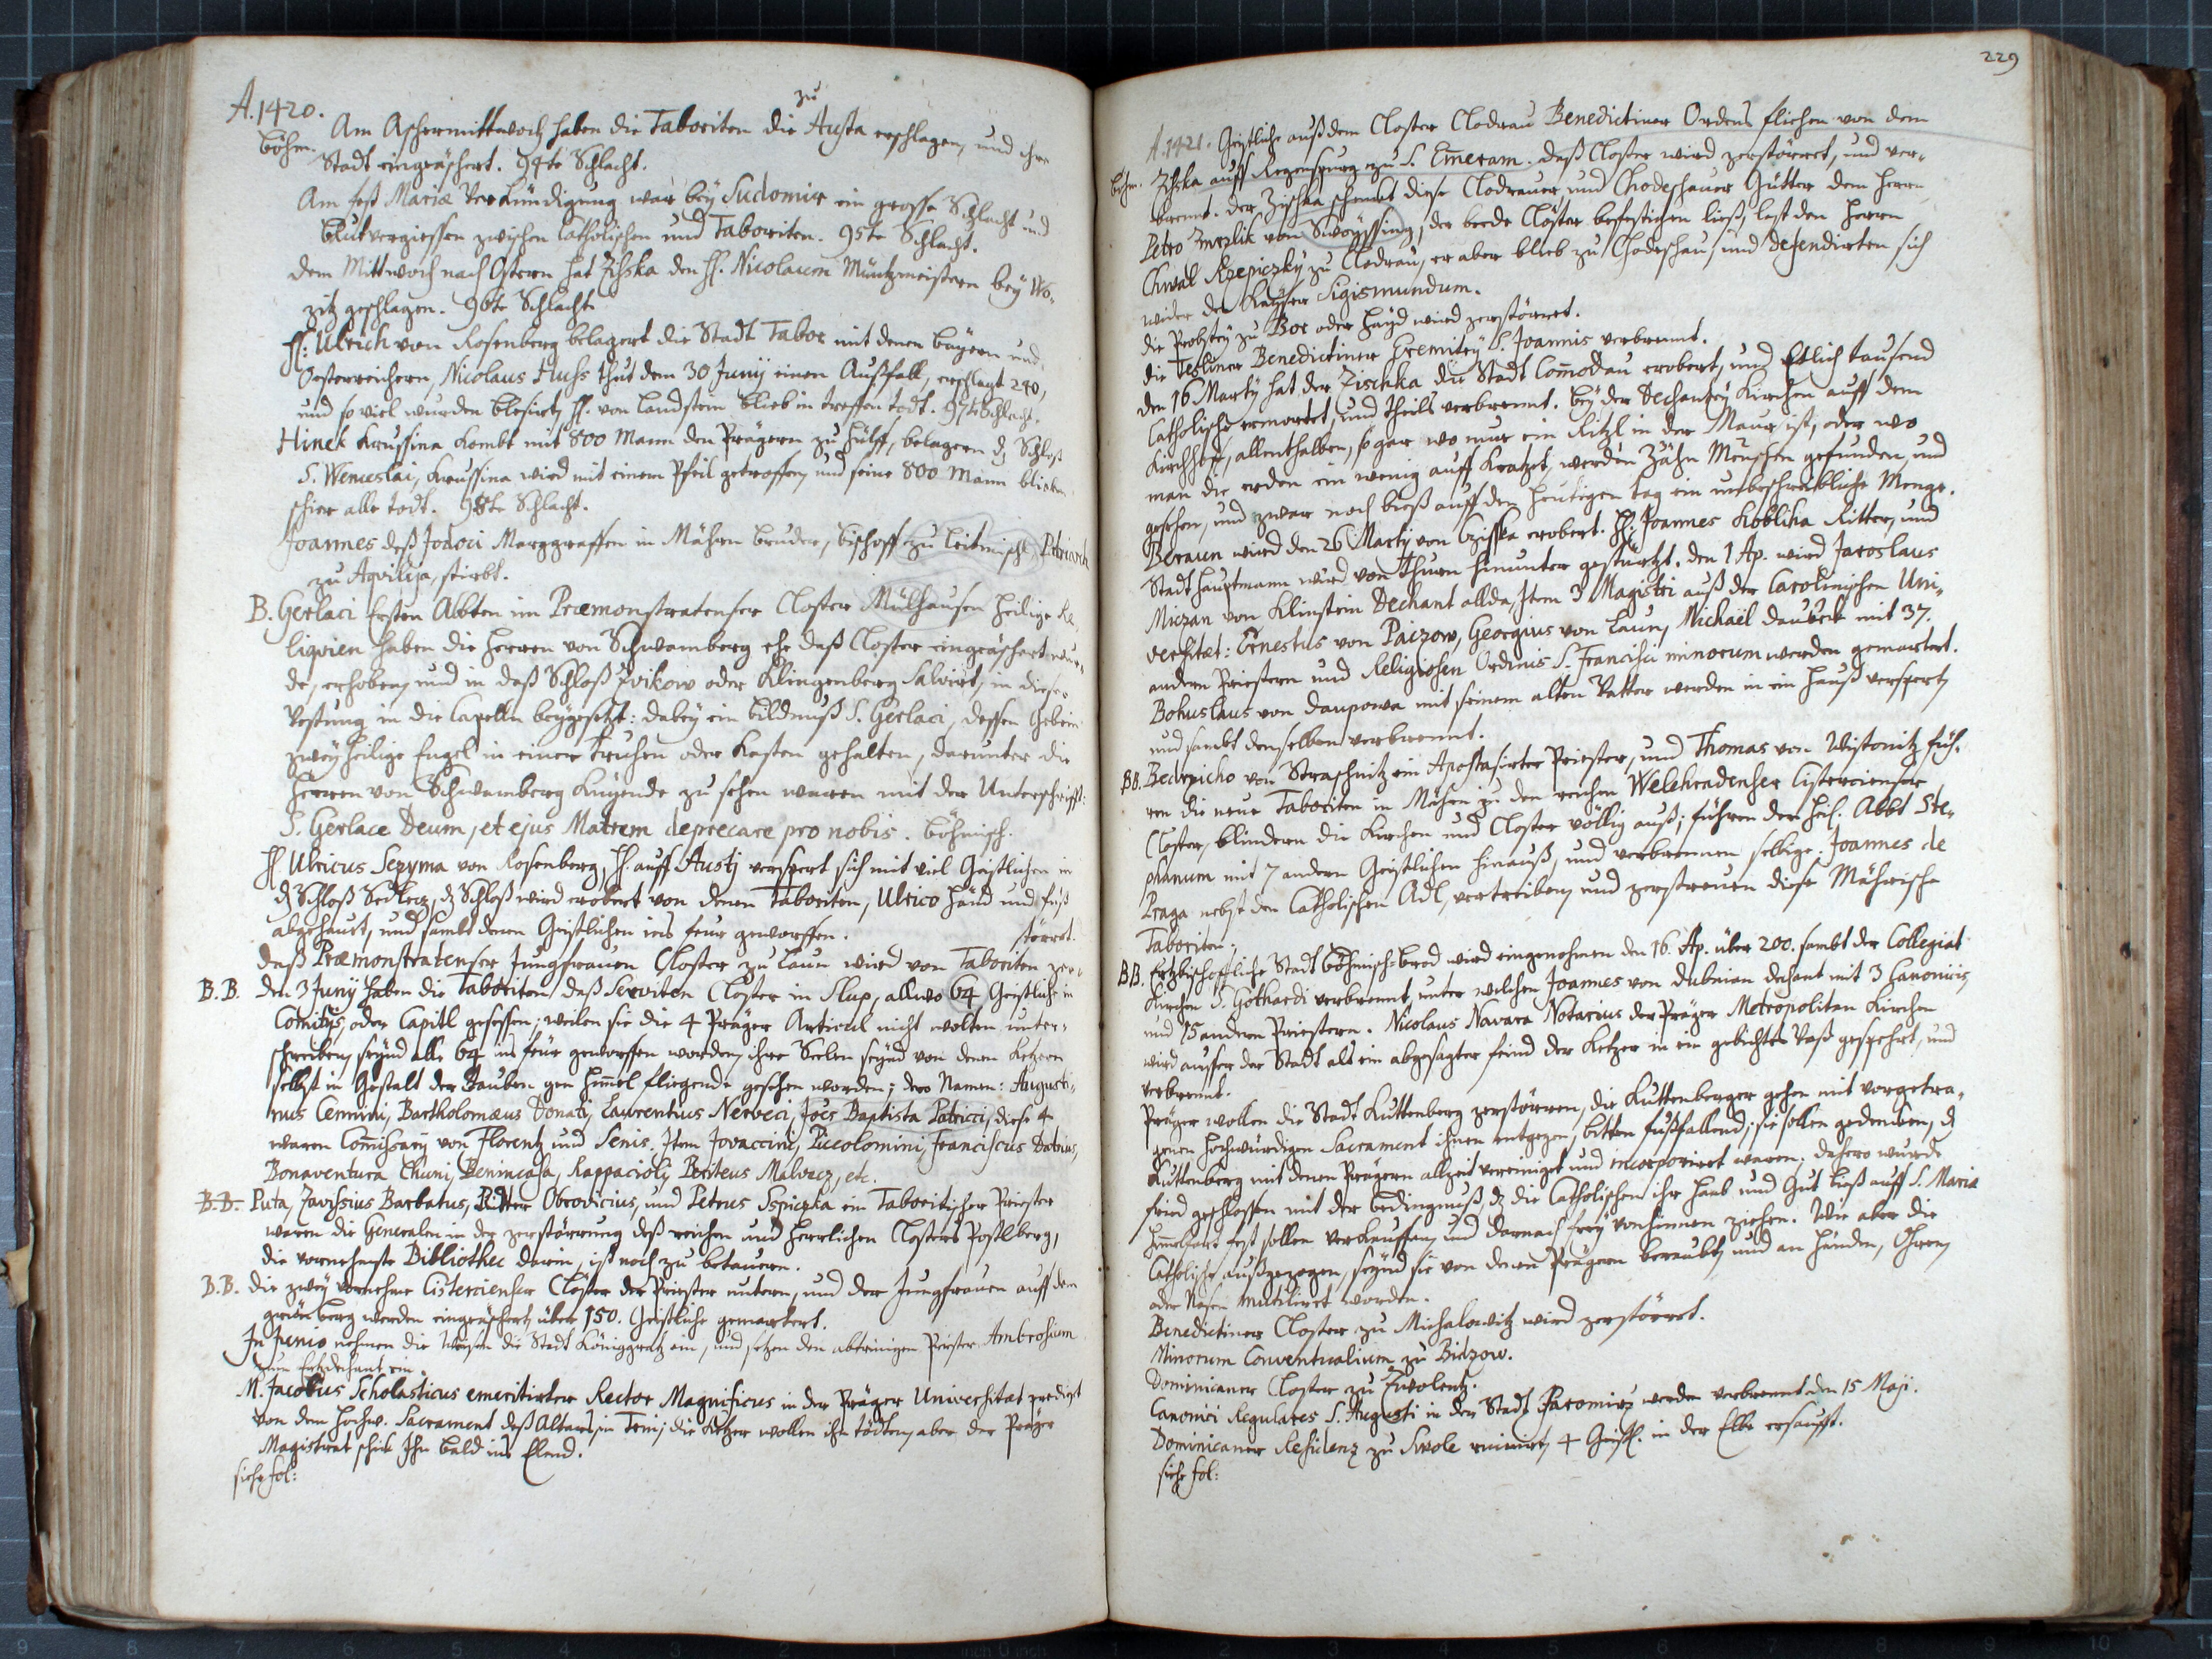 A. 1420.
Böhm. Am Aschermittwoch haben die Taboriten die zu Austa erschlagen, und ihre
Stadt eingeäschert. 94te Schlacht.
Am fest Mariæ Verkündigung war bey Sudomir ein grosse Schlacht und
blutvergiessen zwischen Catholischen und Taboriten. 95te Schlacht.
dem Mittwoch nach Ostern hat Zihska den H. Nicolaum Müntzmeistern bey Wo-
zitz geschlagen. 96te Schlacht.
H: Ulrich von Rosenberg belagert die Stadt Tabor mit denen Bayern und
Oesterreichern, Nicolaus Huss thut dem 30 Junij einen Außfall, erschlagt 240,
und so viel wurden blesirt, H. von Landstein blieb in treffen todt. 97te Schlacht.
Hinek Krussina kombt mit 800 Mann den Prägern zu hülff, belagern dz Schloß
S. Wenceslai, Krussina wird mit einem Pfeil getroffen, und seine 800 Mann blieben
schier alle todt. 98te Schlacht.
Joannes deß Jodoci Marggraffen in Mähren bruder, bischoff zu Leitmischl, Patriarch
zu Aqvileja, stirbt.
B. Gerlaci Ersten Abten im Præmonstratenser Closter Mülhausen heilige Re-
liqvien haben die Herren von Schwamberg ehe daß Closter eingeäschert wur-
de, erhoben, und in daß Schloß Zvikow oder Klingenberg Salvirt, in dieser
Vestung in die Capelln beygesetzt: dabey ein bildnuß S. Gerlaci, dessen Gebein
zwey heilige Engel in einer Truhen oder Kasten gehalten, darunter die
Herren von Schwamberg Knyende zu sehen waren mit der Unterschrifft:
S. Gerlace Deum, et ejus Matrem deprecare pro nobis. böhmisch.
H. Ulricus Sezyma von Rosenberg, H. auff Austj versperrt sich mit viel Geistlichen in
dz Schloß Sedlecz, dz Schloß wird erobert von denen Taboriten, Ulrico händ und füß
abgehaut, und sambt denen Geistlichen ins feur geworffen.
daß Præmonstratenser Jungfrauen Closter zu Laun wird von Taboriten zer-
störret.
B.B. den 3 Junij haben die Taboriten daß Serviten Closter in Slup, allwo 64 Geistliche in
Comitijs, oder Capitl gesessen; weilen sie die 4 Präger Articul nicht wolten unter-
schreiben, seynd alle 64 ins feur geworffen worden, ihre Seelen seynd von denen Ketzern
selbst in Gestalt der Tauben gen himmel fliegende gesehen worden; dero Namen: Augusti-
nus Cennini, Bartholomæus Donati, Laurentius Nerveci, Joes Baptista Patricij, diese 4
waren Commissarij von Florentz und Senis. Item Jovaccini, Piccolomini, Franciscus Dabrius,
Bonaventura Chuni, Benincasa, Rappacioli, Penteus Malvecz, etc.
B.B. Puta, Zavissius Barbatus, Ritter Obrovicius, und Petrus Sspiczka ein Taboritischer Priester
waren die Generalen in der zerstörrung deß reichen und herrlichen Closters Postlberg,
die vornehmste Bibliothec darin, ist noch zu betauren.
B.B. die zwey vornehme Cistercienser Clöster der Priester untern, und der Jungfrauen auff dem
grün berg werden eingeäschert, über 150. Geistliche gemartert.
In Junio nehmen die Waysen die Stadt Königgratz ein, und setzen den abtrinigen Priester Ambrosium
zum Ertzdechant ein.
M. Jacobus Scholasticus emeritirter Rector Magnificus in der Präger Universitat predigt
von dem hochw. Sacrament deß Altars, in Tein; die Ketzer wollen ihn tödten, aber der Präger
Magistrat schick Ihn bald ins Elend.
siehe fol:
229
A. 1421. Geistliche auß dem Closter Cladrau Benedictiner Ordens fliehen von dem
böhm. Zihska auff Regenspurg zu S. Emeram. daß Closter wird zerstörret, und ver-
brennt. der Zischka schenckt diese Cladrauer und Chodeschauer Gütter dem Herrn
Petro Zmrzlik von Swoyssing, der beede Clöster befestigen ließ, last den Herrn
Chwal Rzepiczky zu Cladrau, er aber blieb zu Chodeschau, und defendirten sich
wider den Kayser Sigismundum.
die Probstey zu Bor oder Hayd wird zerstörret.
die Tesliner Benedictiner Eremitey S. Joannis verbrennt.
den 16 Martij hat der Zischka die Stadt Commodau erobert, und Etlich tausend
Catholische ermordet, und theils verbrennt. bey der Dechantey Kirchen auff dem
Kirchhoff, allenthalben, so gar wo nur ein Kitzl in der Maur ist, oder wo
man die erden ein wenig auff kratzet, werden Zähn Menschen gefunden, und
gesehen, und zwar noch bieß auff den heutigen tag ein unbeschreibliche Menge.
Beraun wird den 26 Martij von Czisska erobert. H: Joannes Koblika Ritter, und
Stadthauptmann wird von Thurn hinunter gestürtzt. den 1 Ap. wird Jaroslaus
Miczan von Klinstein Dechant allda, Item 3 Magistri auß der Carolinischen Uni-
versitæt: Ernestus von Paczow, Georgius von Laun, Michaël Daubek mit 37.
andern Priestern und Religiosen Ordinis S. Francisci minorum werden gemartert.
Bohuslaus von Daupowa mit seinem alten Vatter werden in ein hauß versperrt,
und sambt denselben verbrennt.
BB. Bedrzicho von Straschnitz ein Apostasirter Priester, und Thomas von Wistonitz füh-
ren die neue Taboriten in Mähren zu den reichen Welehradenser Cistercienser
Closter, blündern die Kirchen und Closter völlig auß; führen den heil. Abbt Ste-
phanum mit 7 andern Geistlichen hinauß, und verbrennen selbige. Joannes de
Praga nebst den Catholischen Adl, vertreiben, und zerstreuen diese Mährische
Taboriten.
BB. Ertzbischoffliche Stadt böhmisch-brod wird eingenohmen den 16. Ap. über 200. sambt der Collegiat
Kirchen S. Gothardi verbrennt, unter welchen Joannes von Dubnian dechant mit 3 Canonicis,
und 15 andern Priestern. Nicolaus Navara Notarius der Präger Metropolitan Kirchen
wird ausser der Stadt als ein abgesagter feind der Ketzer in ein gebichtes Vaß gesperrt, und
verbrennt.
Präger wollen die Stadt Kuttenberg zerstörren, die Kuttenberger gehen mit vorgetra-
genen hochwürdigen Sacrament ihnen entgegen, bitten fußfallend; sie sollen gedencken, dz
Kuttenberg mit denen Prägern allzeit vereiniget und incorporiret waren. dahero wurde
fried geschlossen mit der bedingnuß, dz die Catholischen ihr Haab und Gut bieß auff S. Mariæ
himmelfart fest sollen verkauffen, und darnach frey von hinnen ziehen. Wie aber die
Catholische außgezogen, seynd sie von denen Prägern beraubt, und an händen, Ohren,
oder Nasen mutiliret worden.
Benedictiner Closter zu Michalowitz wird zerstörret.
Minorum Conventualium zu Bidzow.
Dominicaner Closter zu Zwolentz.
Canonici Regulares S. Augusti in der Stadt Jaromirz werden verbrennt den 15 Maji.
Dominicaner Residenz zu Skole ruinirt, 4 Geistl. in der Elbe ersaufft.
siehe fol: